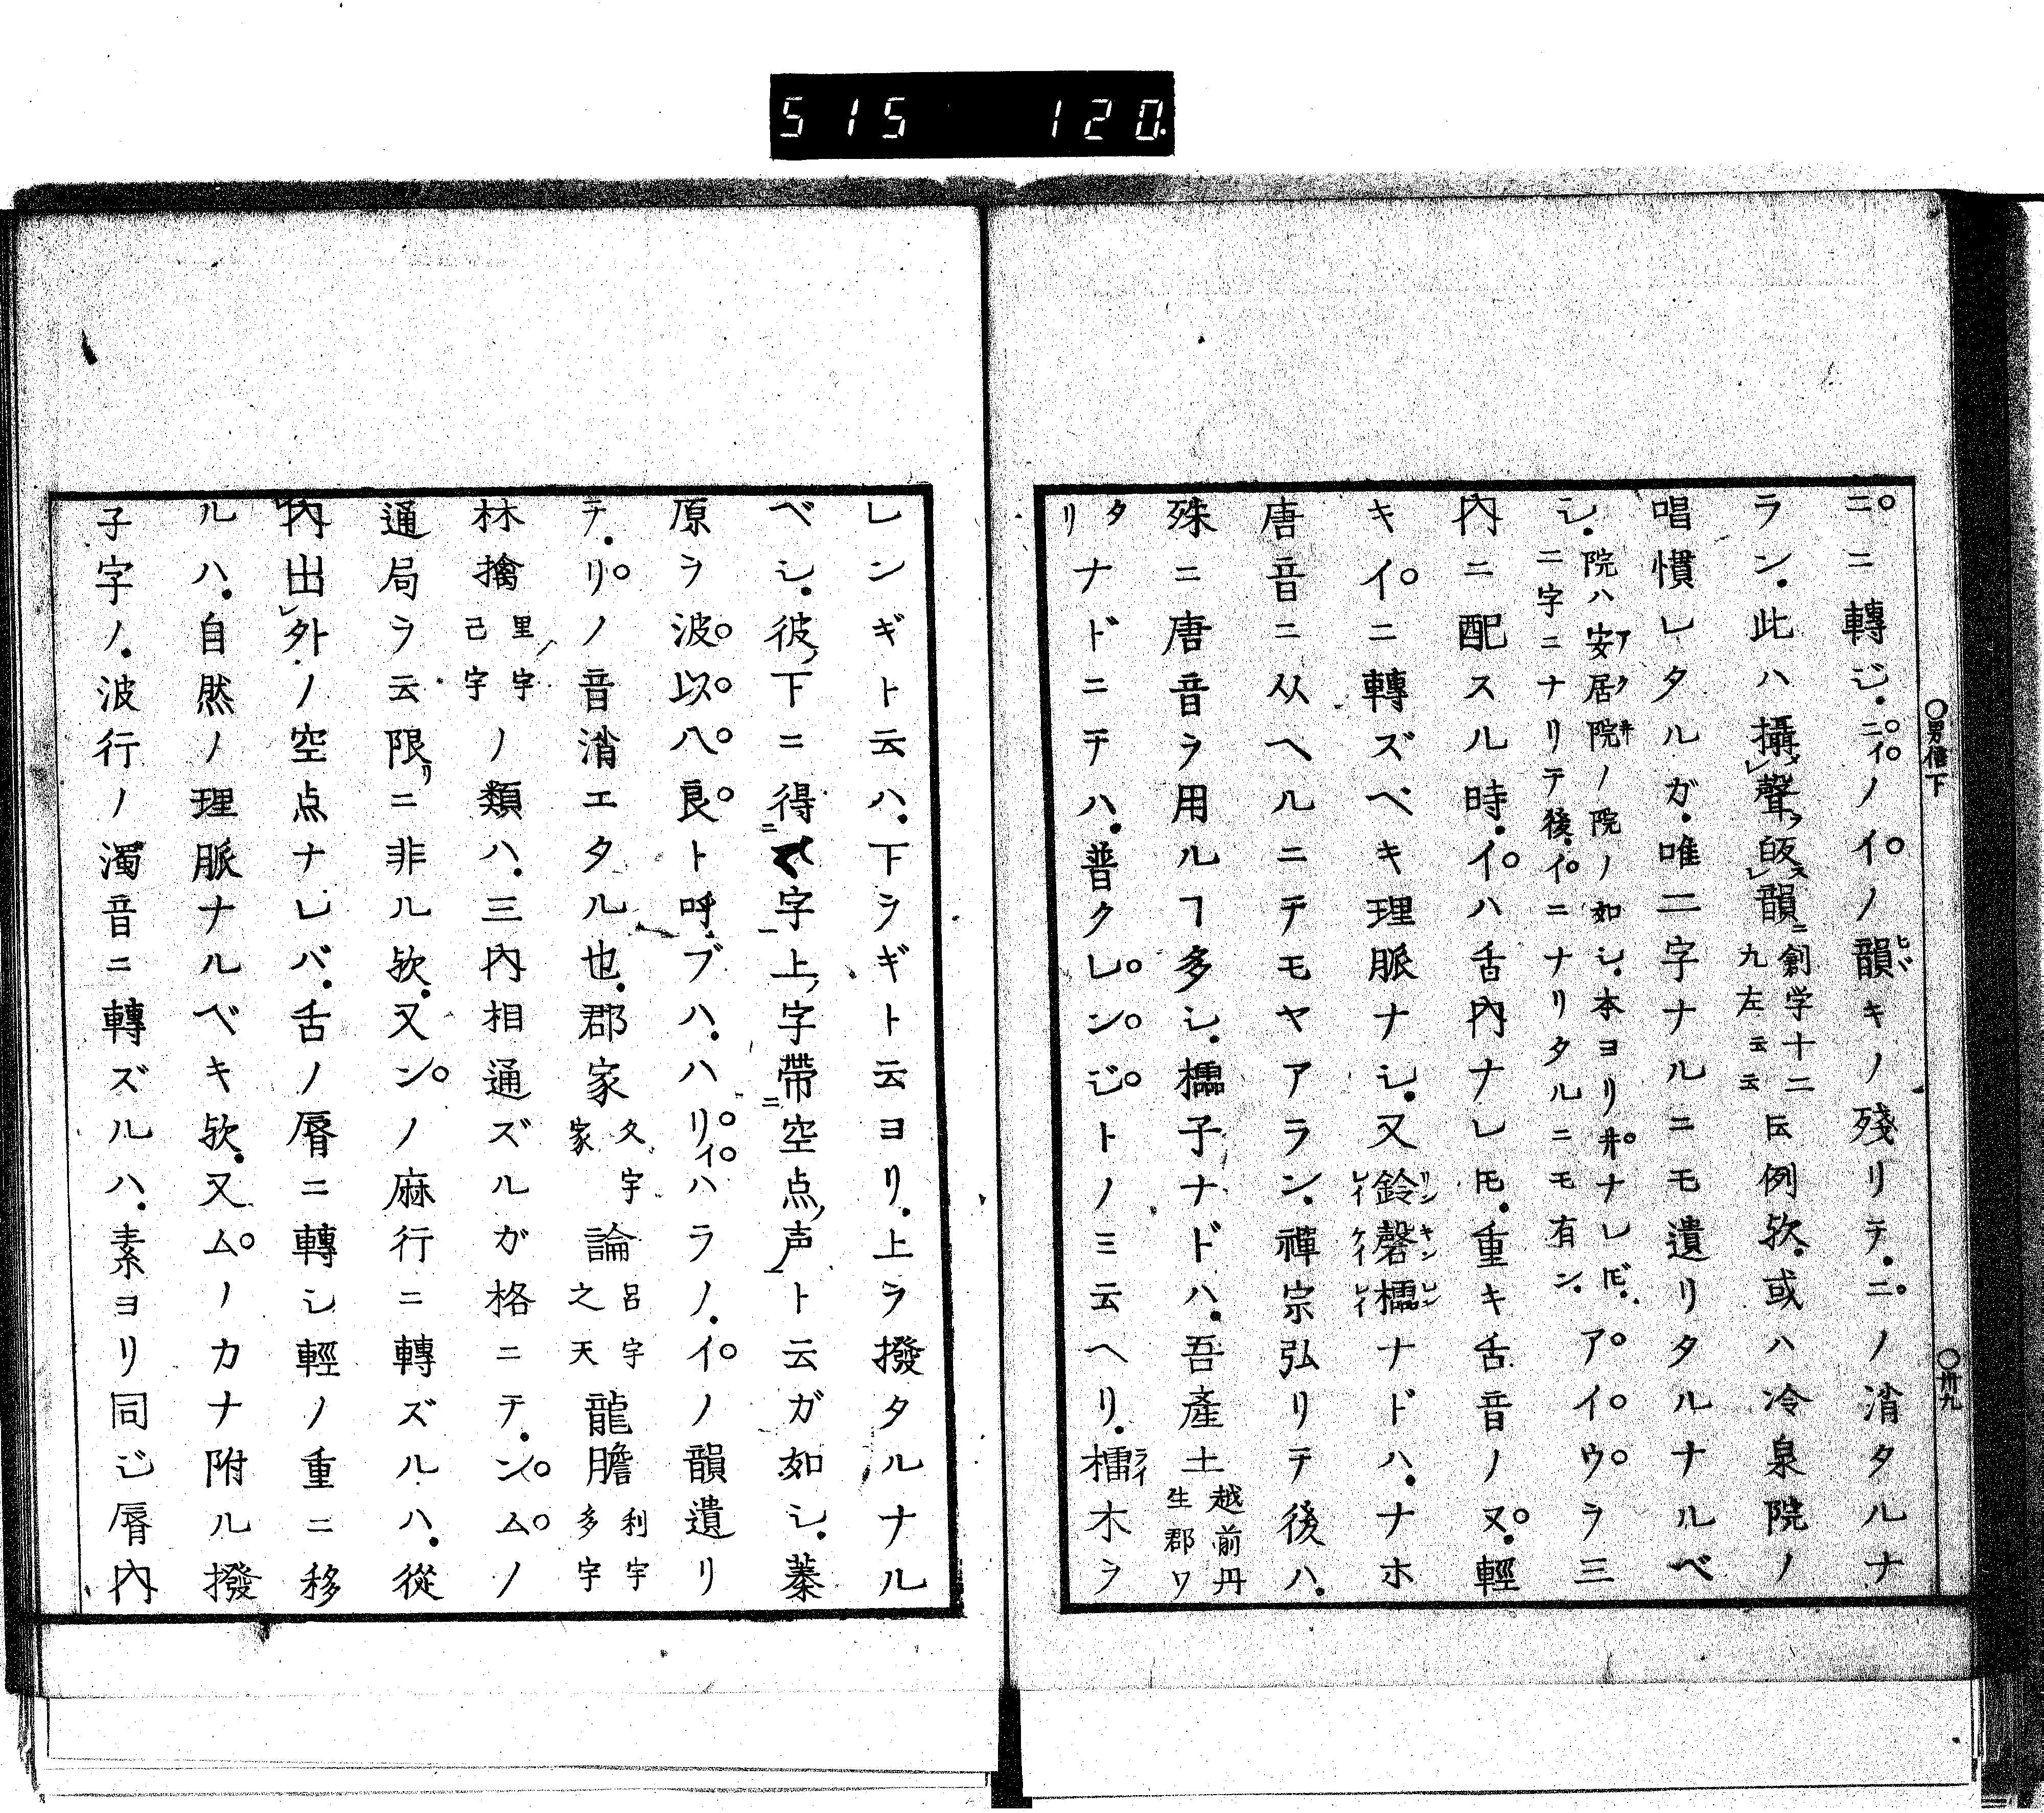 515 120
男信下
卅九
ニニ轉ジ.ニイノイノ韻キノ殘リテ.ニノ消タルナ
ラン.此ハ攝聲皈韻ニ創学十二九左云云𫝆例欤.或ハ冷泉院ノ
唱慣レタルガ.唯二字ナルニモ遺リタルナルベ
シ.院ハ安居院ノ院ノ如シ.本ヨリ井ナレ𪜈.二字ニナリテ後.イニナリタルニモ有ン.アイウヲ三
内ニ配スル時.イハ舌内ナレ𪜈.重キ舌音ノヌ.輕
キイニ轉ズベキ理脈ナシ.又鈴磬櫺ナドハ.ナホ
唐音ニ从ヘルニテモヤアラン.禪宗弘リテ後ハ.
殊ニ唐音ヲ用ルヿ多シ.櫺子ナドハ.吾產土越前丹生郡ワ
タリナドニテハ.普クレンジトノミ云ヘリ.櫺木ヲ
レンギト云ハ.下ヲギト云ヨリ.上ヲ撥タルナル
ベシ.彼下ニ得ニ字上字帶ニ空点声ト云ガ如シ.蓁
原ヲ波以八良ト呼ブハ.ハリイハラノ.イノ韻遺リ
テ.リノ音消エタル也.郡家久宇家論呂宇之天龍膽利宇多宇
林擒里宇己宇ノ類ハ.三内相通ズルガ格ニテ.ンムノ
通局ヲ云限リニ非ル欤.又ンノ麻行ニ轉ズルハ.從
內出外ノ空点ナレバ.舌ノ脣ニ轉シ輕ノ重ニ移
ルハ.自然ノ理脈ナルベキ欤.又ムノカナ附ル撥
子字ノ.波行ノ濁音ニ轉ズルハ.素ヨリ同ジ脣內